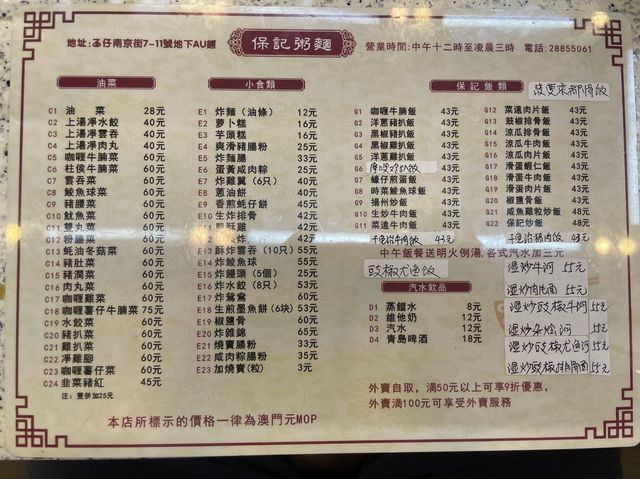 地址:氹仔南京街7-11號地下AU鋪
保記粥麵
營業時間:中午十二時至凌晨三時 電話:28855061
油菜
C1 油菜 28元
C2 上湯淨水餃 40元
C3 上湯淨雲吞 40元
C4 上湯淨肉丸 40元
C5 咖喱牛腩菜 60元
C6 柱侯牛腩菜 60元
C7 雲吞菜 60元
C8 鯪魚球菜 60元
C9 豬腰菜 60元
C10 魷魚菜 60元
C11 雙丸菜 60元
C12 粉腸菜 60元
C13 蚝油冬菇菜 60元
C14 豬肚菜 60元
C15 豬潤菜 60元
C16 肉丸菜 60元
C17 咖喱雞菜 60元
C18 咖喱薯仔牛腩菜 75元
C19 水餃菜 60元
C20 豬扒菜 60元
C21 雞扒菜 60元
C22 淨雞腳 60元
C23 咖喱薯仔菜 60元
C24 韭菜豬紅 45元
注:雙併加25元
小食類
E1 炸麵(油條) 12元
E2 萝卜糕 16元
E3 芋頭糕 16元
E4 爽滑豬腸粉 25元
E5 炸麵腸 33元
E6 蛋黃咸肉粽 25元
E7 炸雞翼(6只) 40元
E8 蔥油餅 40元
E9 香煎蚝仔餅 50元
E10 生炸排骨 42元
42元
42元
E13 酥炸雲吞(10只) 55元
E14 炸鯪魚球 55元
E15 炸饅頭(5個) 25元
E16 炸水餃(8只) 53元
E17 炸鴛鴦 60元
E18 生煎墨魚餅(6块) 53元
E19 椒鹽骨 60元
E20 炸雜錦 65元
E21 燒賣腸粉 33元
E22 咸肉粽腸粉 35元
E23 加燒賣(粒) 3元
保記飯類
G1 咖喱牛腩飯 43元
G2 洋蔥豬扒飯 43元
G3 黑椒豬扒飯 43元
G4 黑椒雞扒飯 43元
G5 洋蔥雞扒飯 43元
G6 43元
G7 蠔仔煎蛋飯 43元
G8 時菜鯪魚球飯 43元
G9 揚州炒飯 43元
G10 生炒牛肉飯 43元
G11 菜遠牛肉飯 43元
43元
G12 菜遠肉片飯 43元
G13 鼓椒排骨飯 43元
G14 涼瓜排骨飯 43元
G15 涼瓜牛肉飯 43元
G16 涼瓜肉片飯 43元
G17 滑蛋蝦仁飯 43元
G18 滑蛋牛肉飯 43元
G19 滑蛋肉片飯 43元
G20 椒鹽骨飯 43元
G21 咸魚雞粒炒飯 48元
G22 保記炒飯 48元
43元
中午飯餐送明火例湯,各式汽水加三元
豉椒尤魚飯
汽水飲品
D1 蒸餾水 8元
D2 維他奶 12元
D3 汽水 12元
D4 青島啤酒 18元
湿炒牛河 55元
湿炒肉片面 55元
湿炒豉椒牛河 55元
湿炒杂烩河 55元
湿炒豉椒尤魚河 55元
湿炒豉椒排骨面 55元
外賣自取,滿50元以上可享9折優惠,
外賣滿100元可享受外賣服務
本店所標示的價格一律為澳門元MOP